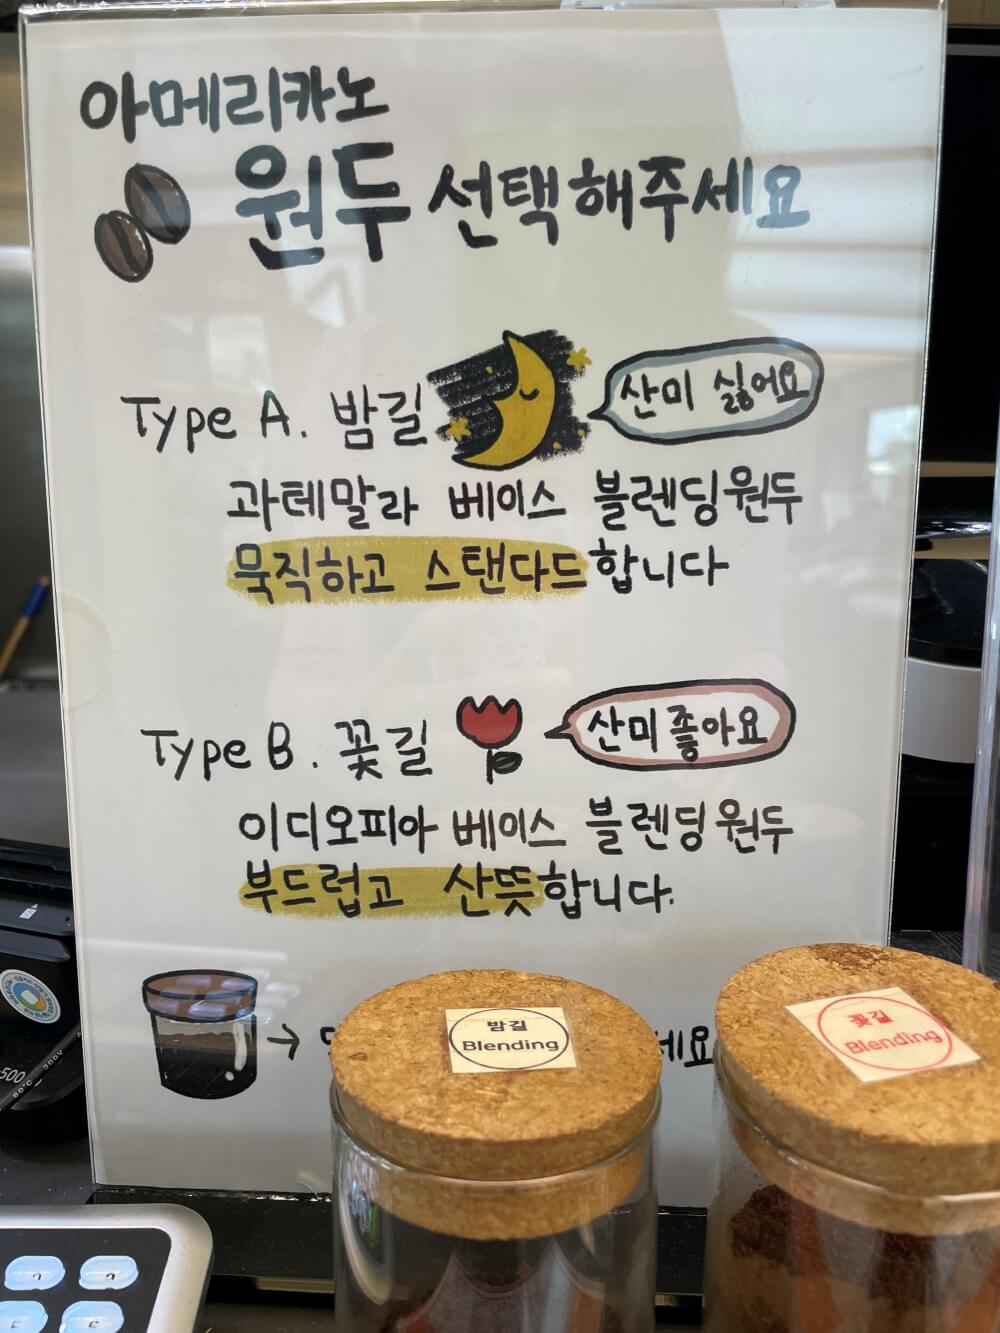 아메리카노
원두 선택해주세요
Type A. 밤길
산미 싫어요
과테말라 베이스 블렌딩원두
묵직하고 스탠다드합니다
Type B. 꽃길
산미좋아요
이디오피아 베이스 블렌딩원두
부드럽고 산뜻합니다.
밤길
Blending
꽃길
Blending